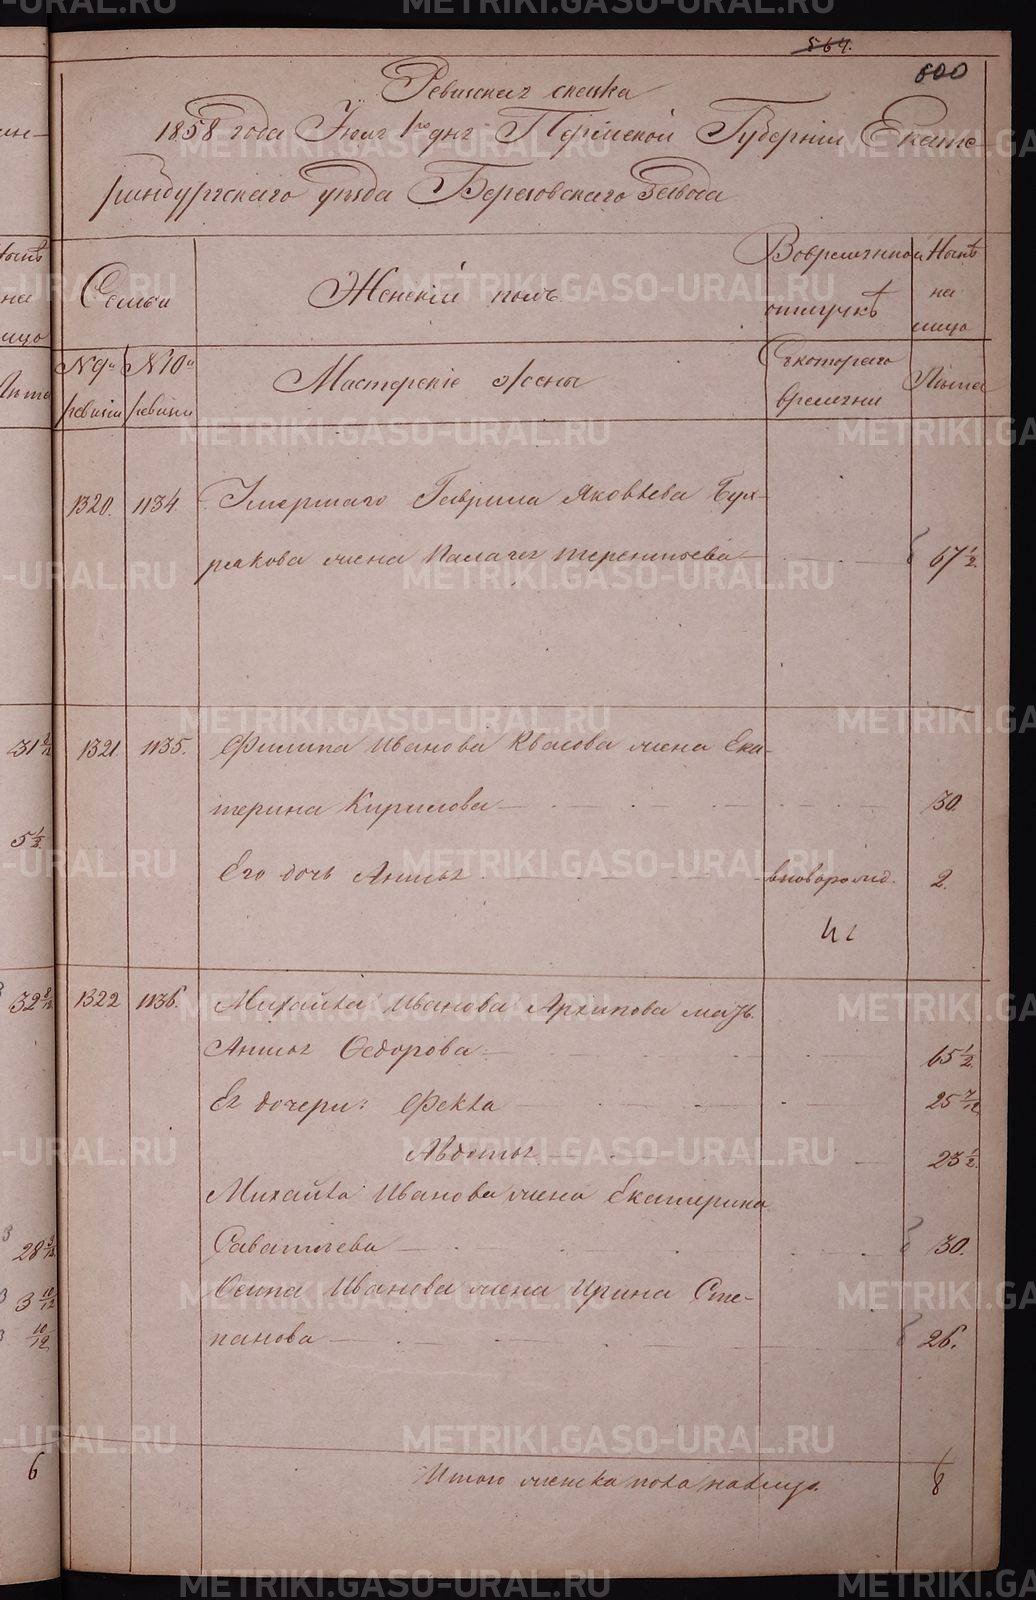 564.
600
Ревизская сказка
1858 года Июля 1го дня Пермской Губерніи Екате
ринбургскаго уѣзда Березовскаго Завода
Семьи
Женскій полъ.
Вовременной
отлучкѣ
Нынѣ
на
лицо
N 9й
ревизіи
N 10й
ревизіи
Мастерскіе жены
Съкотораго
времени
Лѣта
1320. 1134. Умершаго Гаврила Яковлева Бул-
жена Палагея Терентьева 67 1/2.
31 1321. 1135. Филипа Иванова Квасова жена Ека-
терина Кирилова 30.
5 1/2.
Его дочь Анисья вноворожд. 2.
32 8/12 1322 1136. Михайла Иванова Архипова мать
Анисья Федорова 65 1/2.
Ея дочери: Фекла 25 7/12
Авдотья 23 1/2.
Михайла Иванова жена Екатерина
Саватиева 30.
28
Осипа Иванова жена Ирина Сте-
3 10/12
панова 26.
10/12
Итого женска пола налицо. 8
6
METRIKI.GASO-URAL.RU